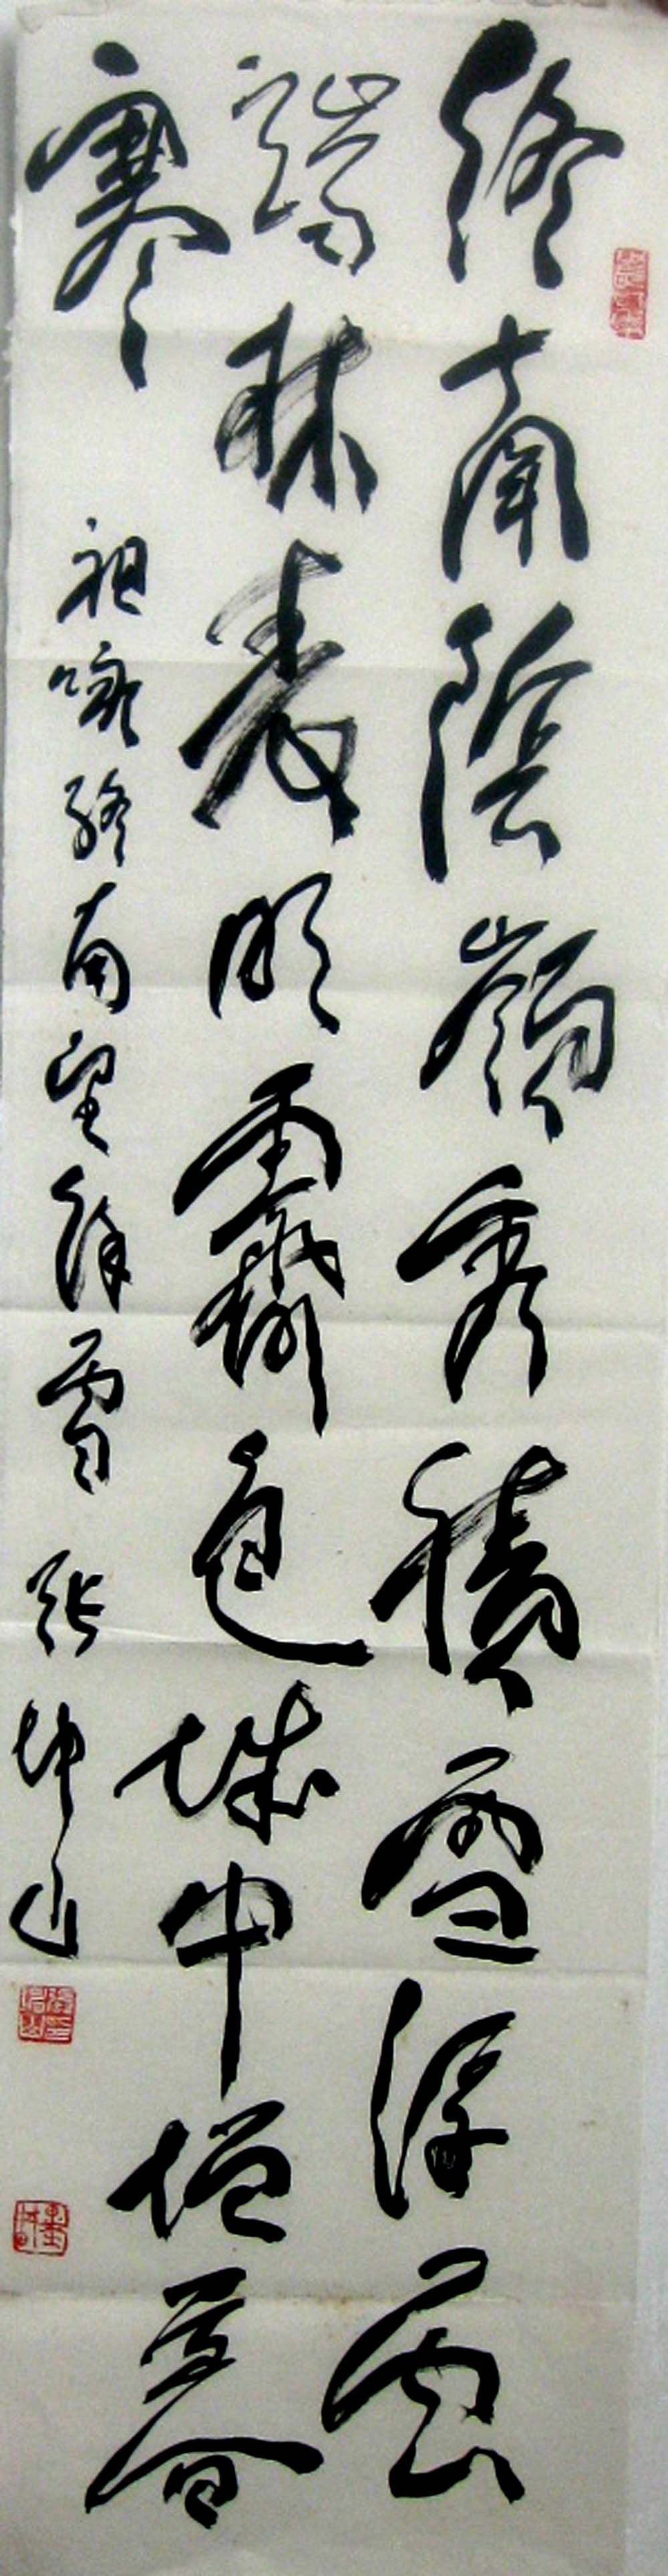 終南陰嶺秀積雪浮雲
端林表明霽色城中增暮
寒
祖詠終南望餘雪 張坤山